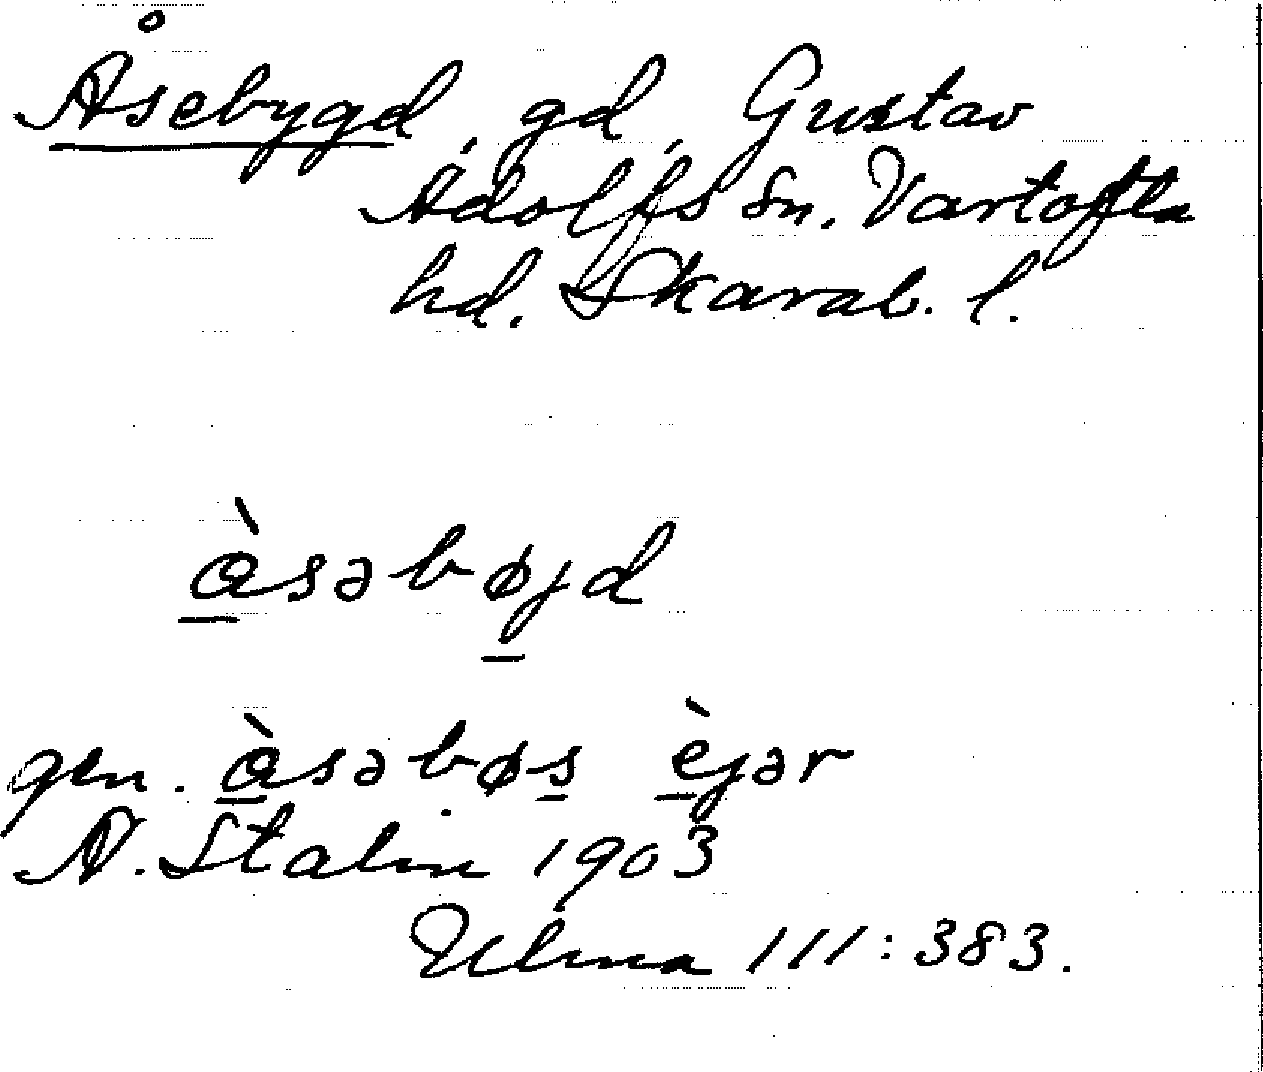 Åsebygd, gd, Gustav
Adolfs sn. Vartofta
hd. Skarab. l.
à̠səbø̠jd
gen. à̠səbøs̠ è̠jər
N. Stalin 1903
Ulma 111:383.